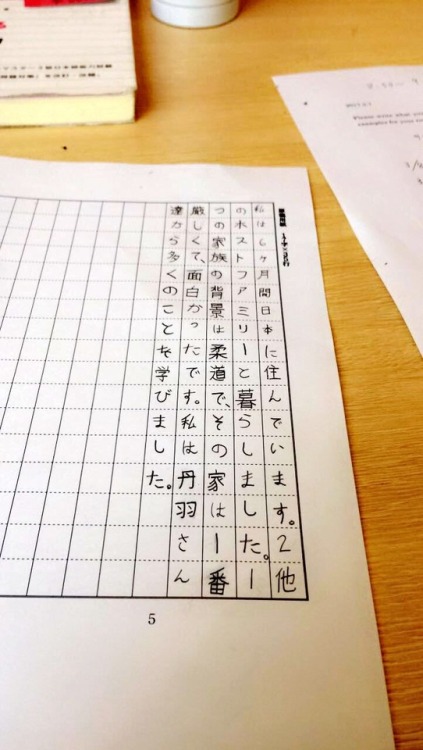 私は6ヶ月間日本に住んでいます。2他
のホストファミリーと暮らしました。1
つの家族の背景は柔道で、その家は1番
厳しくて、面白かったです。私は丹羽さん
達から多くのことを学びました。
5
Please write what